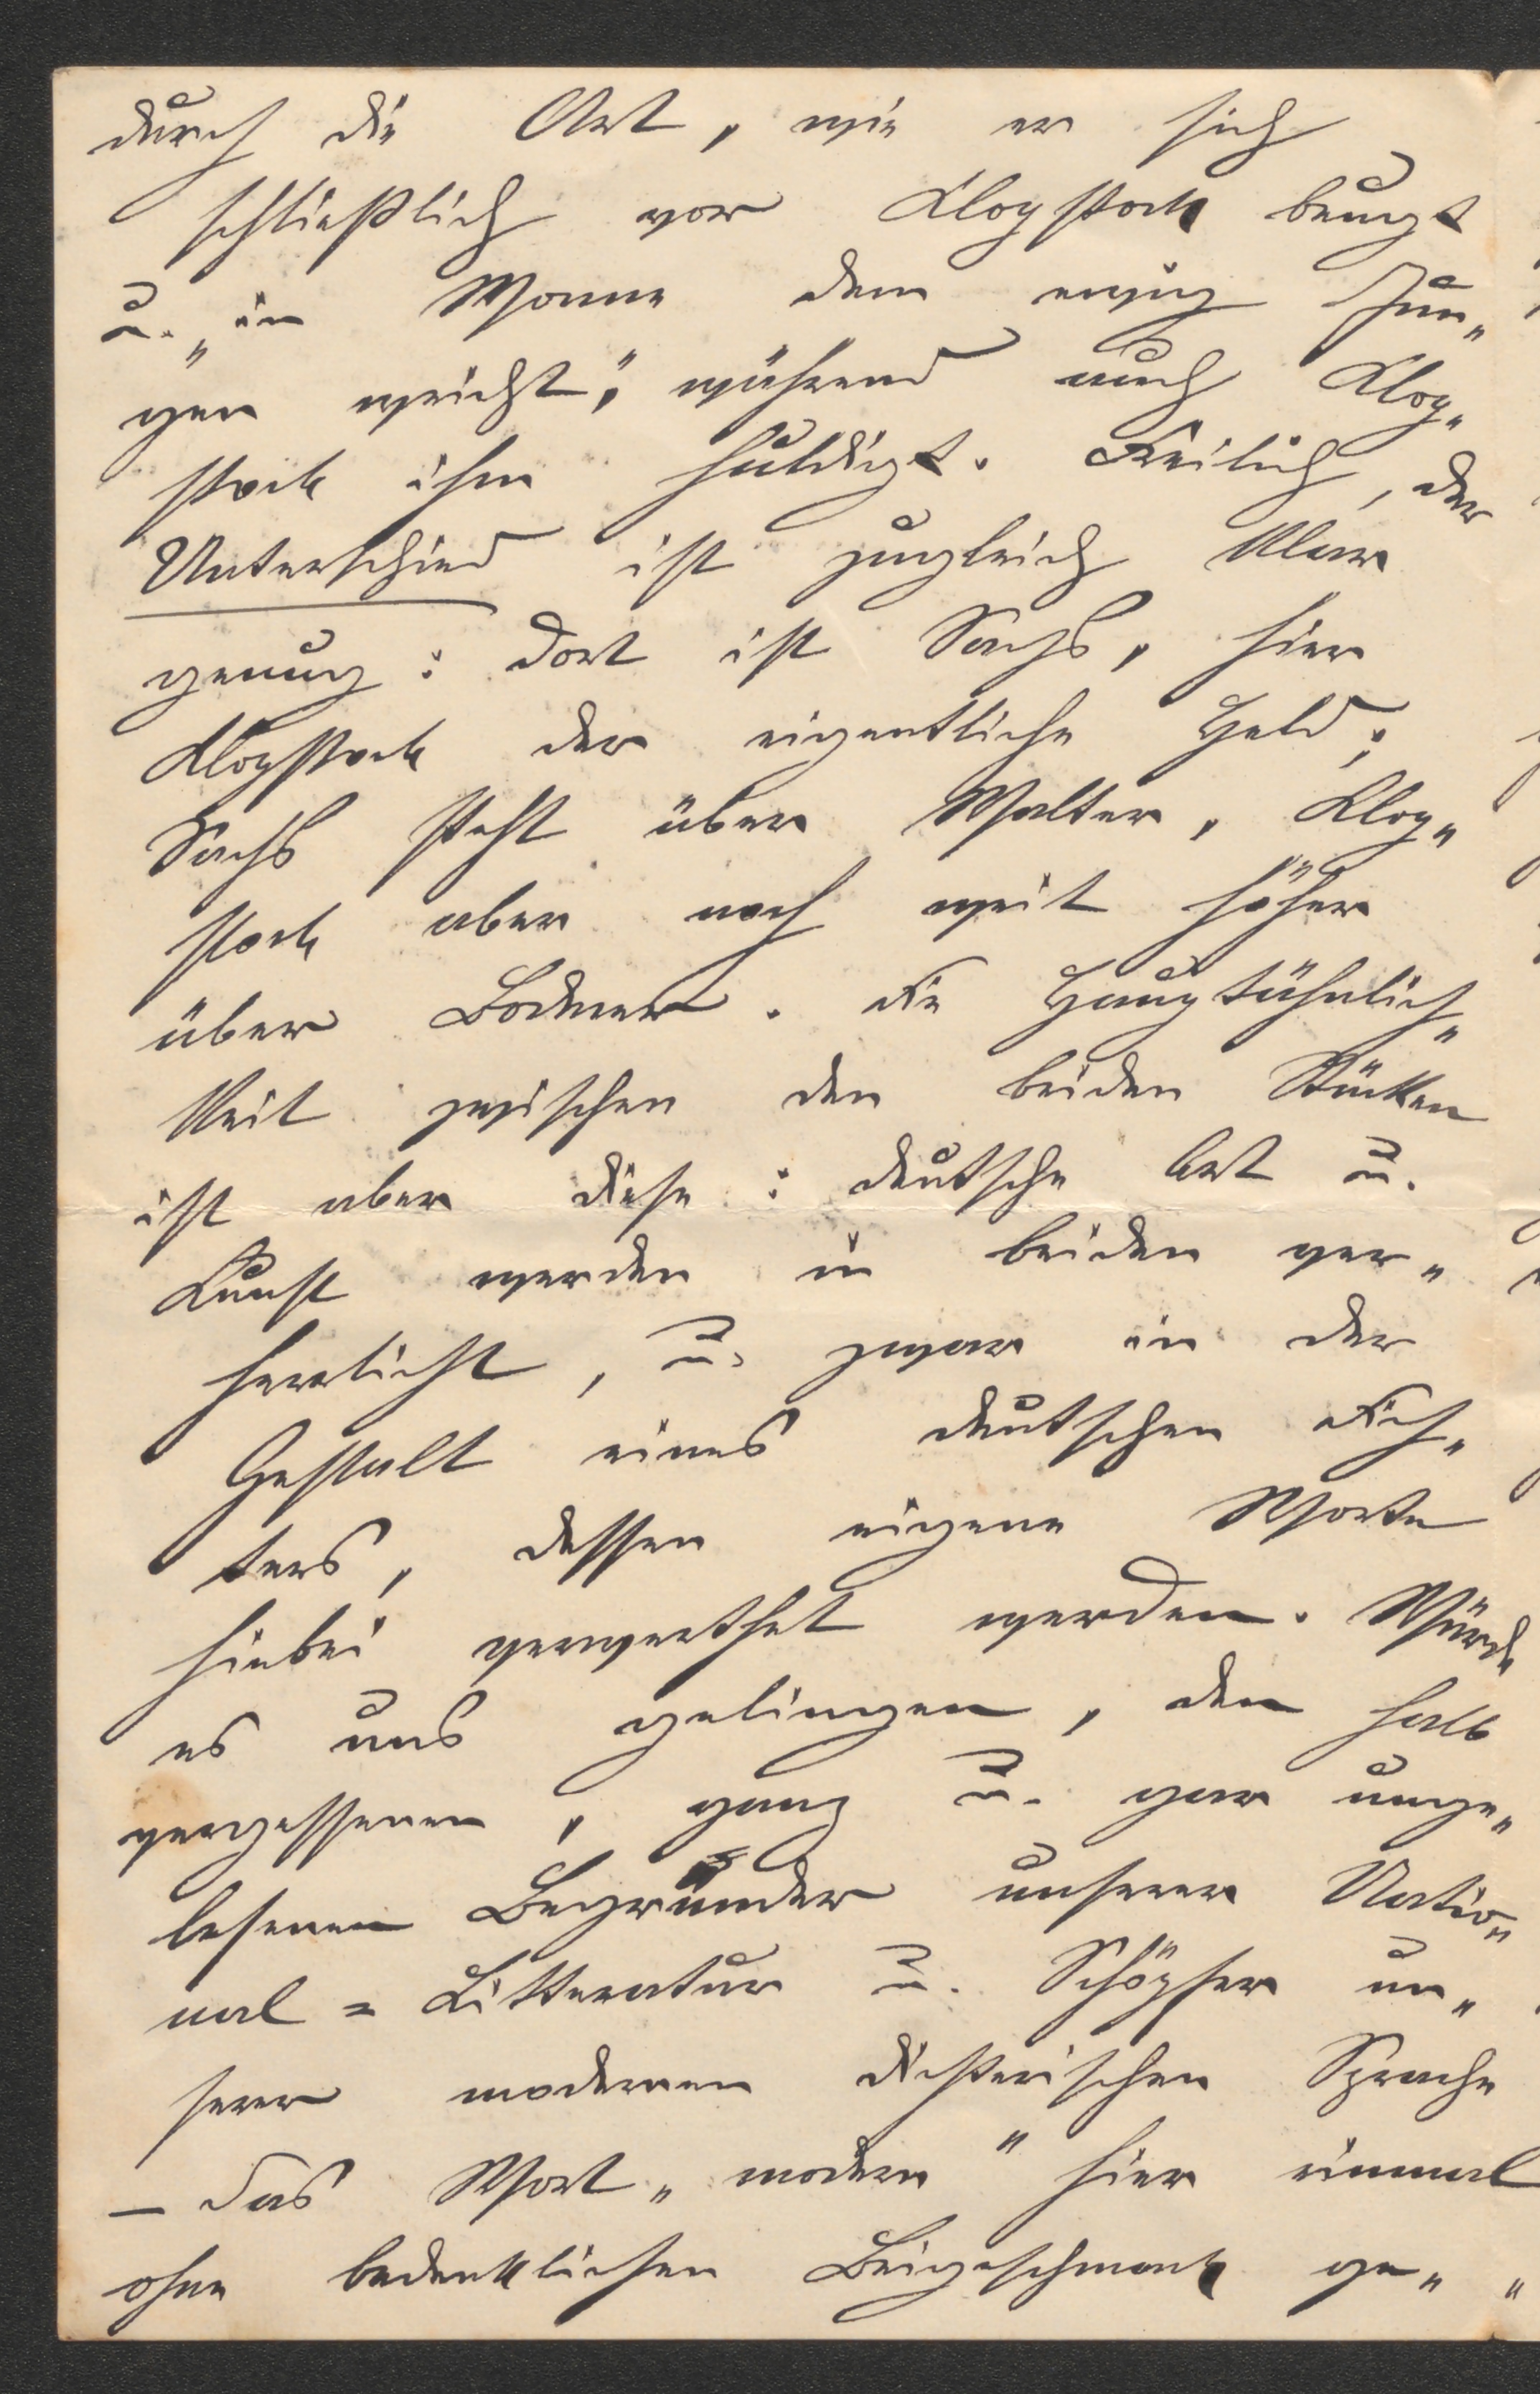 durch die Art, wie er sich
schließlich vor Klopstock beugt
u. „in Wonne dem ewig Jun„
gen weicht“, während auch Klop„
stock ihm huldigt. Freilich, der
Unterschied ist zugleich klar
genug: dort ist Sachs, hier
Klopstock der eigentliche Held;
Sachs steht über Walter, Klop„
stock aber noch weit höher
über Bodmer. Die Hauptähnlich„
keit zwischen den beiden Stücken
ist aber diese: deutsche Art u.
Kunst werden in beiden ver„
herrlicht, u. zwar in der
Gestalt eines deutschen Dich„
ters, dessen eigene Worte
hiebei verwerthet werden. Würde
es uns gelingen, den halb
vergessenen, ganz u. gar unge„
lesenen Begründer unserer Natio„
nal = Litteratur u. Schöpfer un„
serer modernen dichterischen Sprache
– das Wort „modern“ hier einmal
ohne bedenklichen Beigeschmack ge„